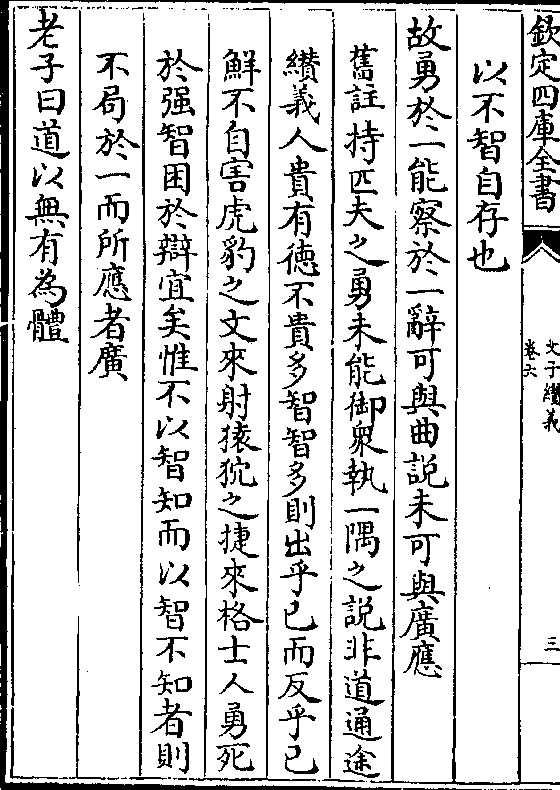 欽定四庫全書
文子纘義
卷六
三
以不智自存也
故勇於一能察於一辭可與曲說未可與廣應
舊註持匹夫之勇未能御衆執一隅之說非道通途
纘義人貴有德不貴多智智多則出乎已而反乎已
鮮不自害虎豹之文來射猿狖之捷來格士人勇死
於强智困於辯宜矣惟不以智知而以智不知者則
不局於一而所應者廣
老子曰道以無有為體